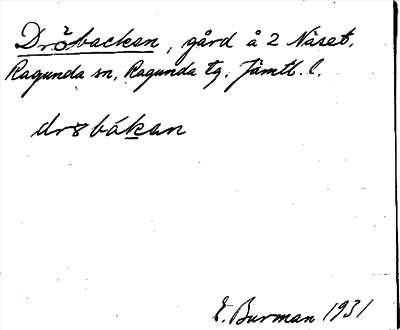 Dröbacken, gård å 2 Näset,
Ragunda sn, Ragunda tg. Jämtl. l.
dr8bákan
E. Burman 1931